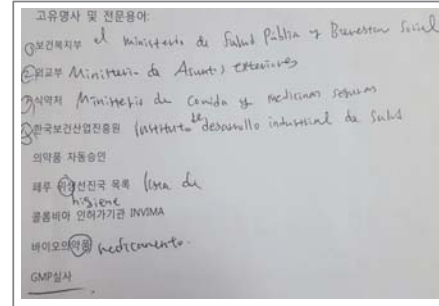 고유명사 및 전문용어:
①보건복지부 el ministerio de Salud Pública y Bienestar Social
②외교부 Ministerio de Asuntos exteriores
③식약처 Ministerio de Comida y medicinas seguras
한국보건산업진흥원 Instituto de desarrollo industrial de Salud
의약품 자동승인
페루 위생선진국 목록 lista de
higiene
콜롬비아 인허가기관 INVIMA
바이오의약품 medicamento.
GMP실사